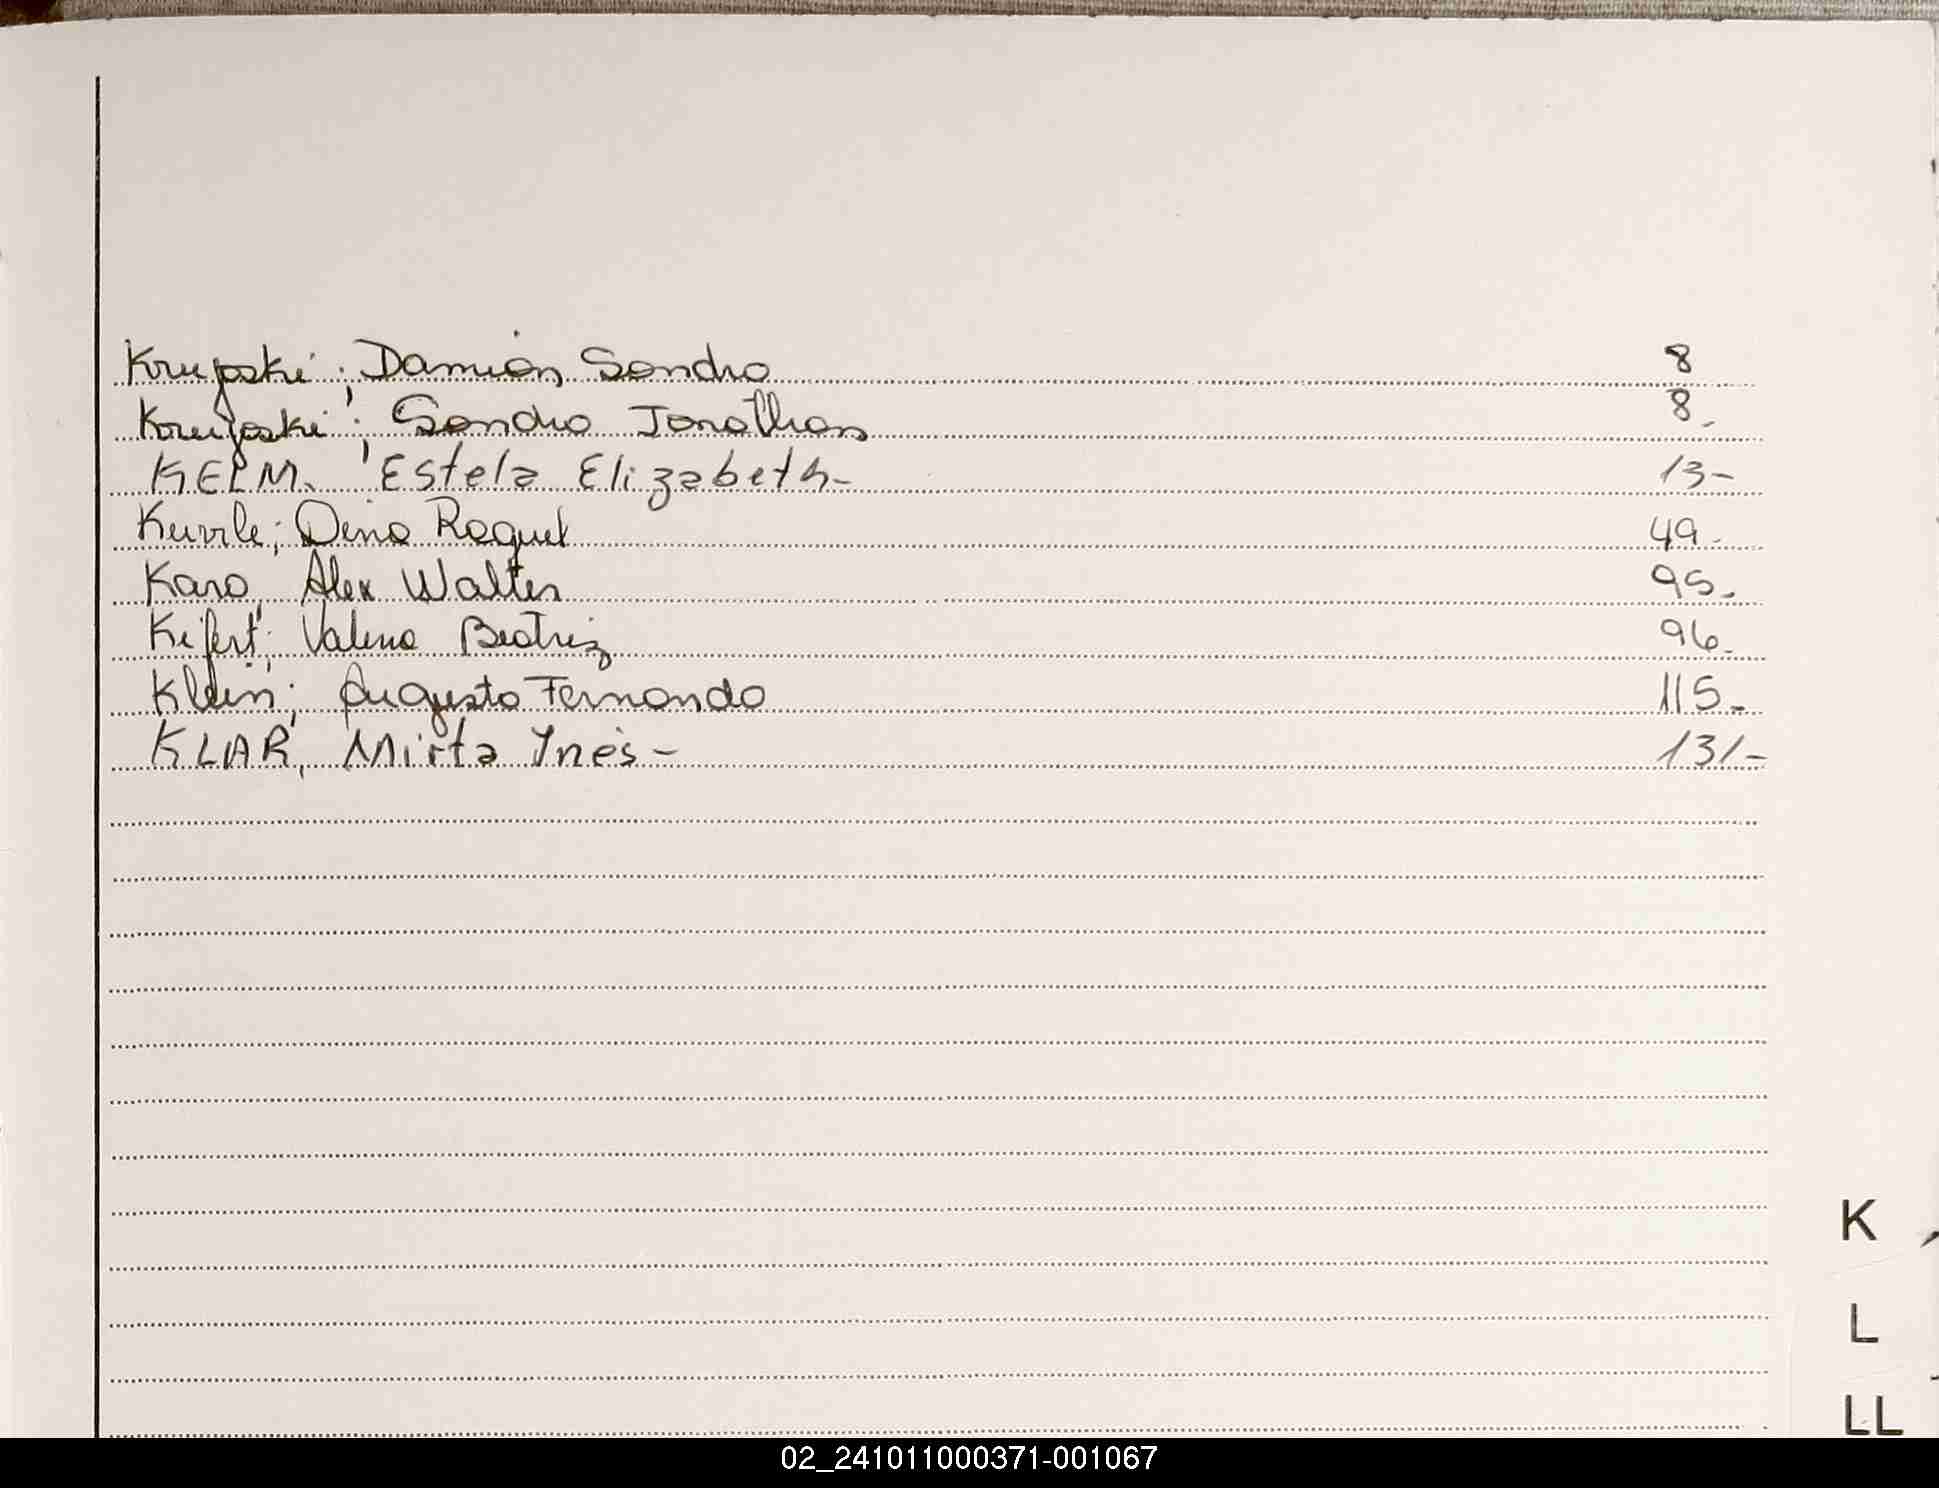 Krupski; Damián Sandro 8
Krupski; Sandro Jonathan 8-
KELM, Estela Elizabeth- 13-
Dina Raquel 49-
Karo, Alex Walter 95-
Kifert; Valeria Beatriz 96-
Klein; Augusto Fernando 115-
KLAR, Mirta Ynés- 131-
K
L
LL
02_241011000371-001067